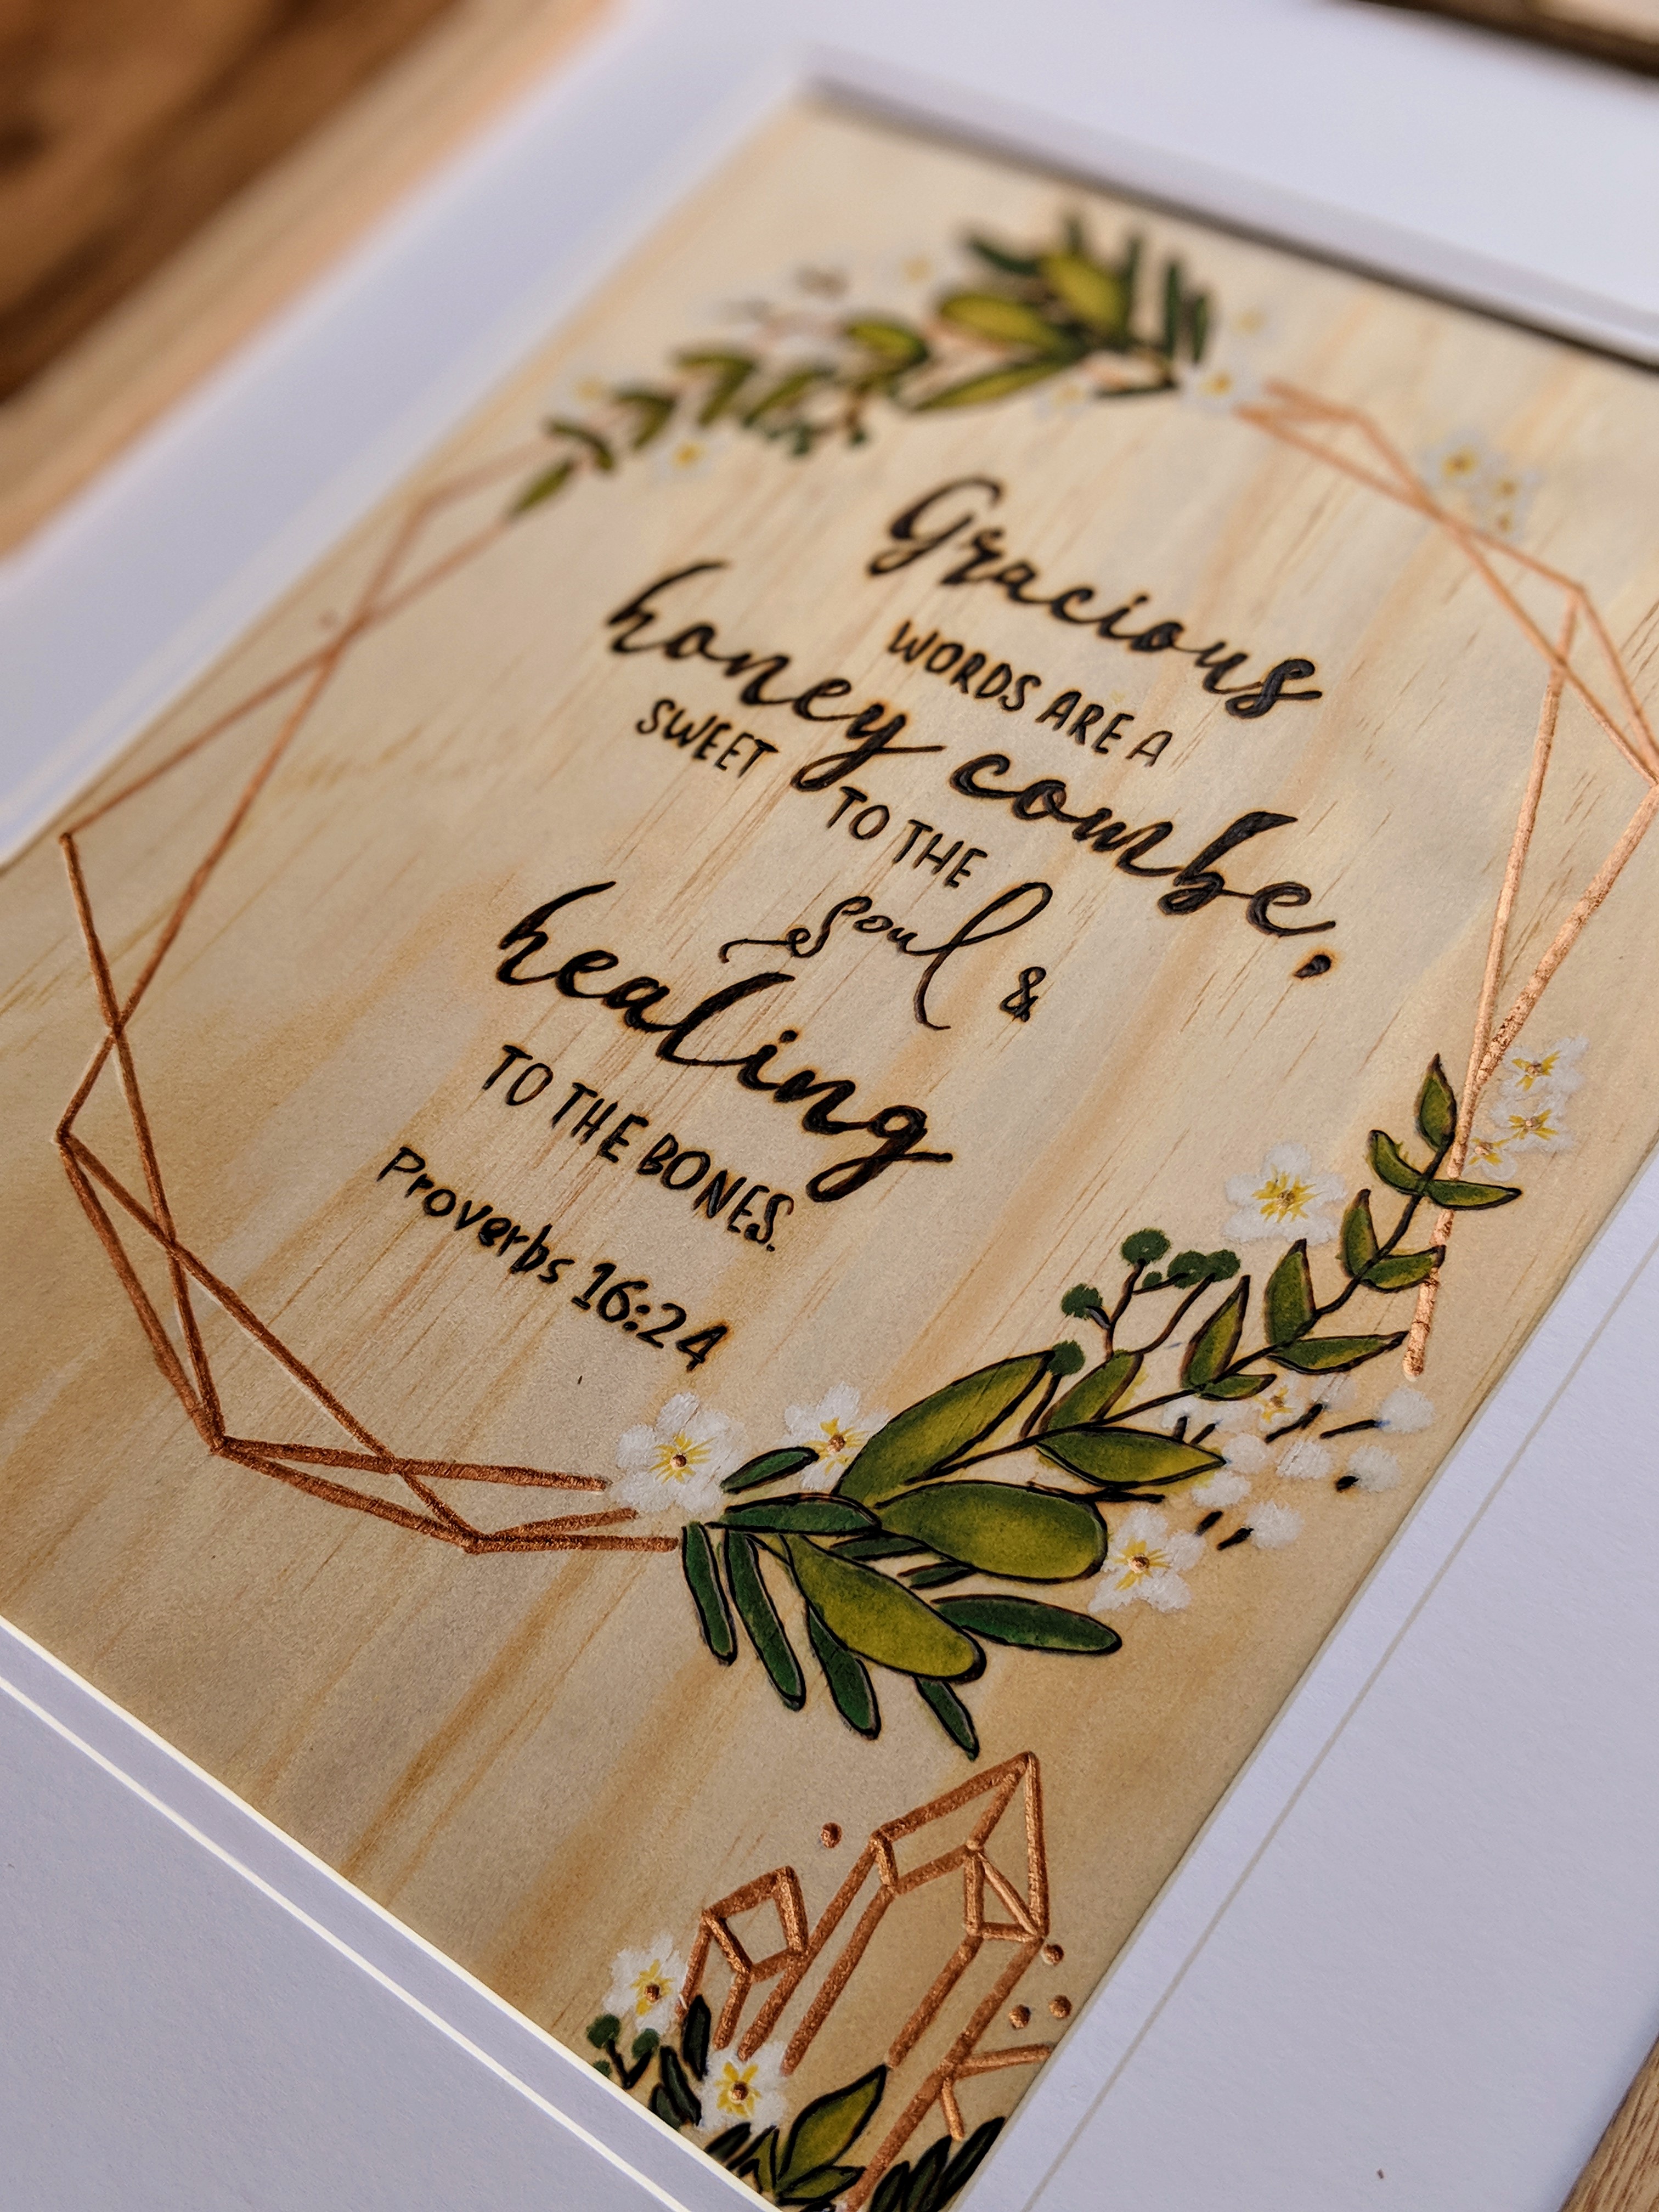 Gracious
WORDS ARE A
honey combe,
SWEET TO THE
soul &
healing
TO THE BONES.
Proverbs 16:24